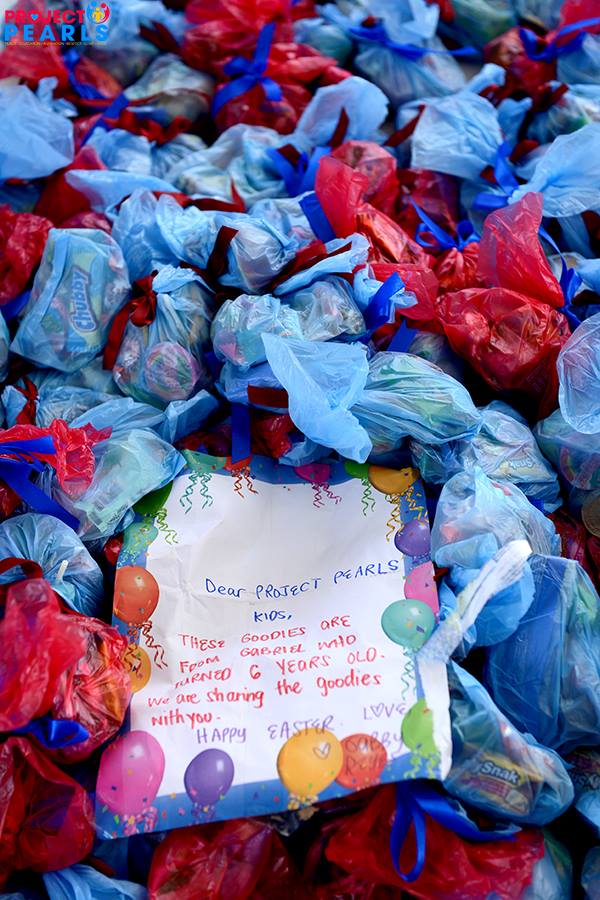 PROJECT
PEARLS
Chubby
Dear PROJECT PEARLS
KIDS,
THESE GOODIES ARE
FROM GABRIEL WHO
TURNED 6 YEARS OLD.
We are sharing the goodies
with you.
HAPPY EASTER. LOVE
GABBY
Snak